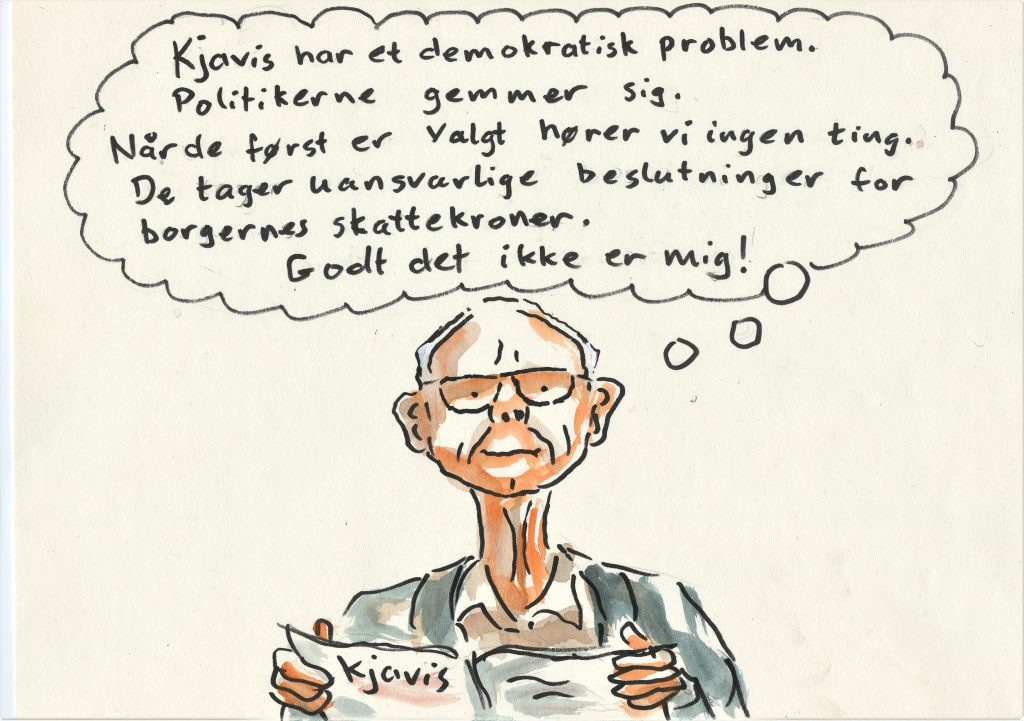 Kjavis har et demokratisk problem.
Politikerne gemmer sig.
Når de først er valgt hører vi ingen ting.
De tager uansvarlige beslutninger for
borgernes skattekroner.
Godt det ikke er mig!
Kjavis